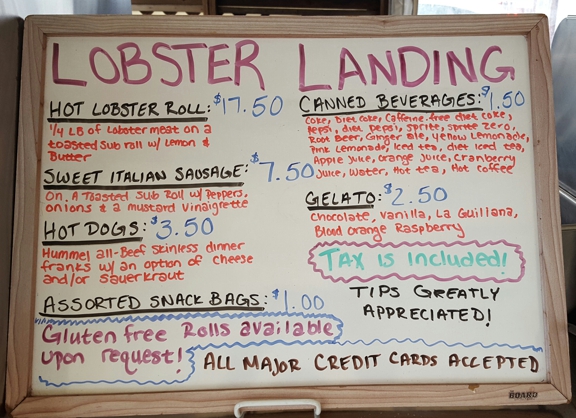 LOBSTER LANDING
HOT LOBSTER ROLL: $17.50
1/4 LB of Lobster meat on a
toasted Sub roll w/ Lemon &
Butter
SWEET ITALIAN SAUSAGE: $7.50
On A Toasted Sub Roll w/ Peppers,
onions & a mustard vinaigrette
HOT DOGS: $3.50
Hummel all-Beef Skinless dinner
franks w/ an option of cheese
and/or sauerkraut
ASSORTED SNACK BAGS: $1.00
Gluten free Rolls available
upon request!
CANNED BEVERAGES: $1.50
Coke, Diet Coke, Caffeine-free diet Coke,
Pepsi, diet pepsi, sprite, sprite zero,
Root Beer, Ginger ale, yellow Lemonade,
Pink Lemonade, iced tea, diet iced tea,
Apple juice, orange juice, Cranberry
juice, Water, Hot tea, Hot coffee
GELATO: $2.50
Chocolate, Vanilla, La Guillana,
Blood orange Raspberry
TAX is included!
TIPS GREATLY
APPRECIATED!
ALL MAJOR CREDIT CARDS ACCEPTED
THE BOARD